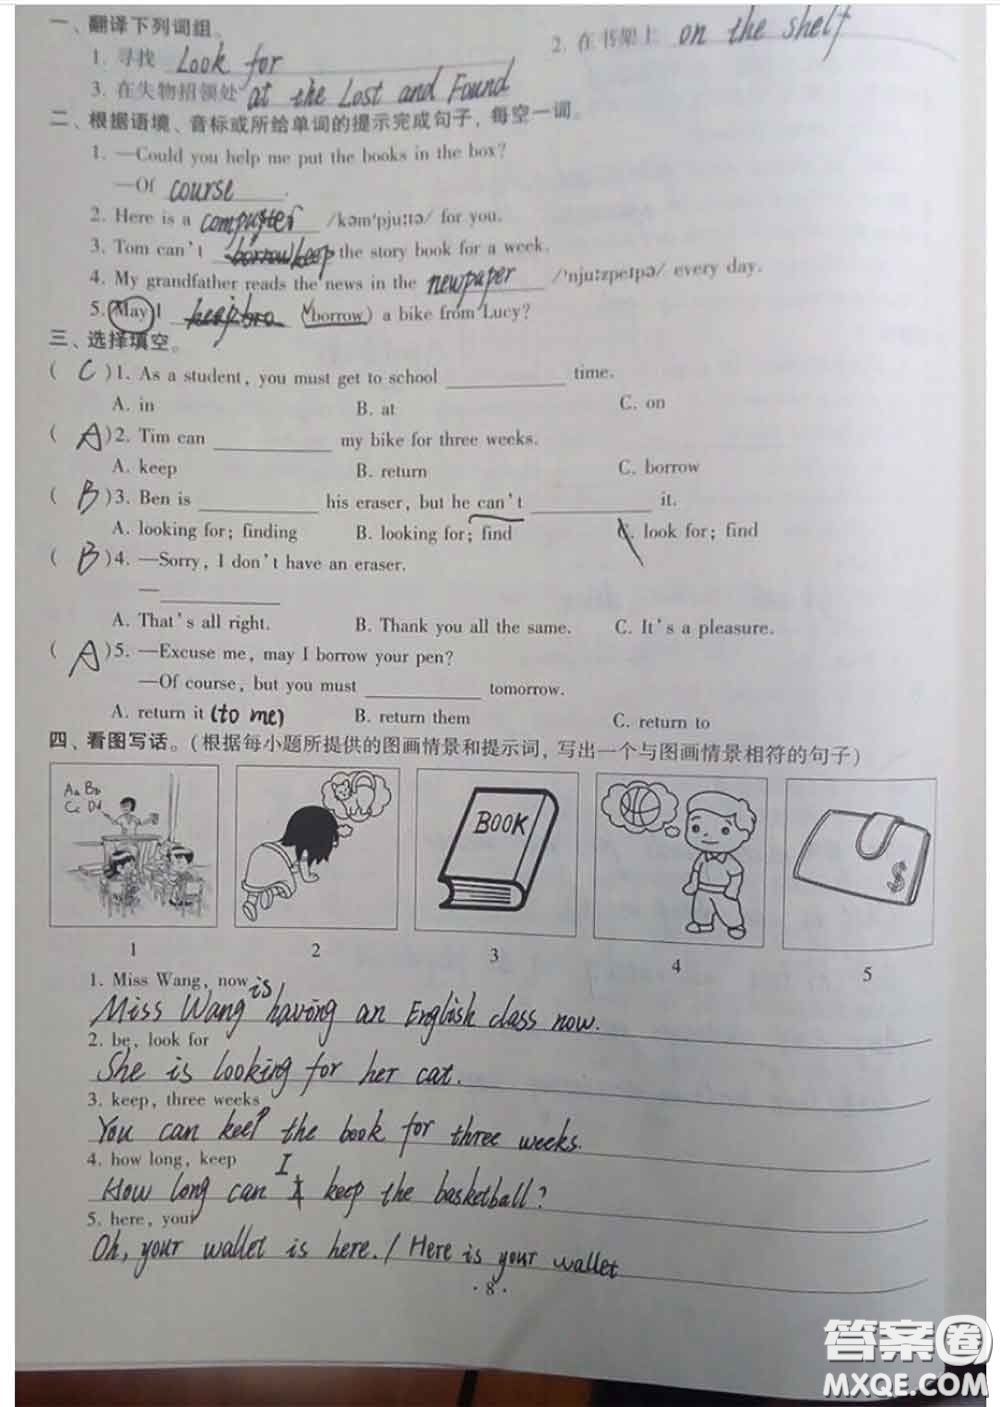 一、翻译下列词组。
1. 寻找 Look for 2. 在书架上 on the shelf
3. 在失物招领处 at the Lost and Found
二、根据语境、音标或所给单词的提示完成句子，每空一词。
1. —Could you help me put the books in the box?
—Of course.
2. Here is a computer /kəm'pjuːtə/ for you.
3. Tom can't borrow keep the story book for a week.
4. My grandfather reads the news in the newpaper /'njuːzpeɪpə/ every day.
5. May I (borrow) a bike from Lucy?
三、选择填空。
( C )1. As a student, you must get to school ____ time.
A. in B. at C. on
( A )2. Tim can ____ my bike for three weeks.
A. keep B. return C. borrow
( B )3. Ben is ____ his eraser, but he can't ____ it.
A. looking for; finding B. looking for; find C. look for; find
( B )4. —Sorry, I don't have an eraser.
—____
A. That's all right. B. Thank you all the same. C. It's a pleasure.
( A )5. —Excuse me, may I borrow your pen?
—Of course, but you must ____ tomorrow.
A. return it (to me) B. return them C. return to
四、看图写话。(根据每小题所提供的图画情景和提示词，写出一个与图画情景相符的句子)
Aa Bb
Cc Dd
BOOK
$
1 2 3 4 5
1. Miss Wang, now
Miss Wang is having an English class now.
2. be, look for
She is looking for her cat.
3. keep, three weeks
You can keep the book for three weeks.
4. how long, keep
How long can I keep the basketball?
5. here, your
Oh, your wallet is here. / Here is your wallet
· 8 ·
答案圈
MXQE.COM